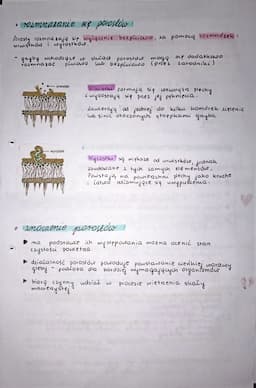 • rozmnażanie się porostów
Porosty rozmnażają się wyłącznie bezpłciowo, za pomocą rozmnóżek:
urwistków i wyrostków.
- grzyby wchodzące w skład porostów mogą się dodatkowo
rozmnażać płciowo lub bezpłciowo (przez zarodniki)
Urwistki formują się wewnątrz plechy
i wydostają się przez jej pęknięcia.
zawierają od jednej do kilku komórek zielenic
lub sinic otoczonych strzępkami grzyba
Wyrostki są większe od urwistków, jednak
zbudowane z tych samych elementów.
Powstają na powierzchni plechy jako kruche
i łatwo odłamujące się uwypuklenia.
• znaczenie porostów
▶ na podstawie ich występowania można ocenić stan
czystości powietrza
▶ działalność porostów powoduje powstawanie cienkiej warstwy
gleby - podłoża dla bardziej wymagających organizmów
▶ biorą czynny udział w procesie wietrzenia skały
macierzystej